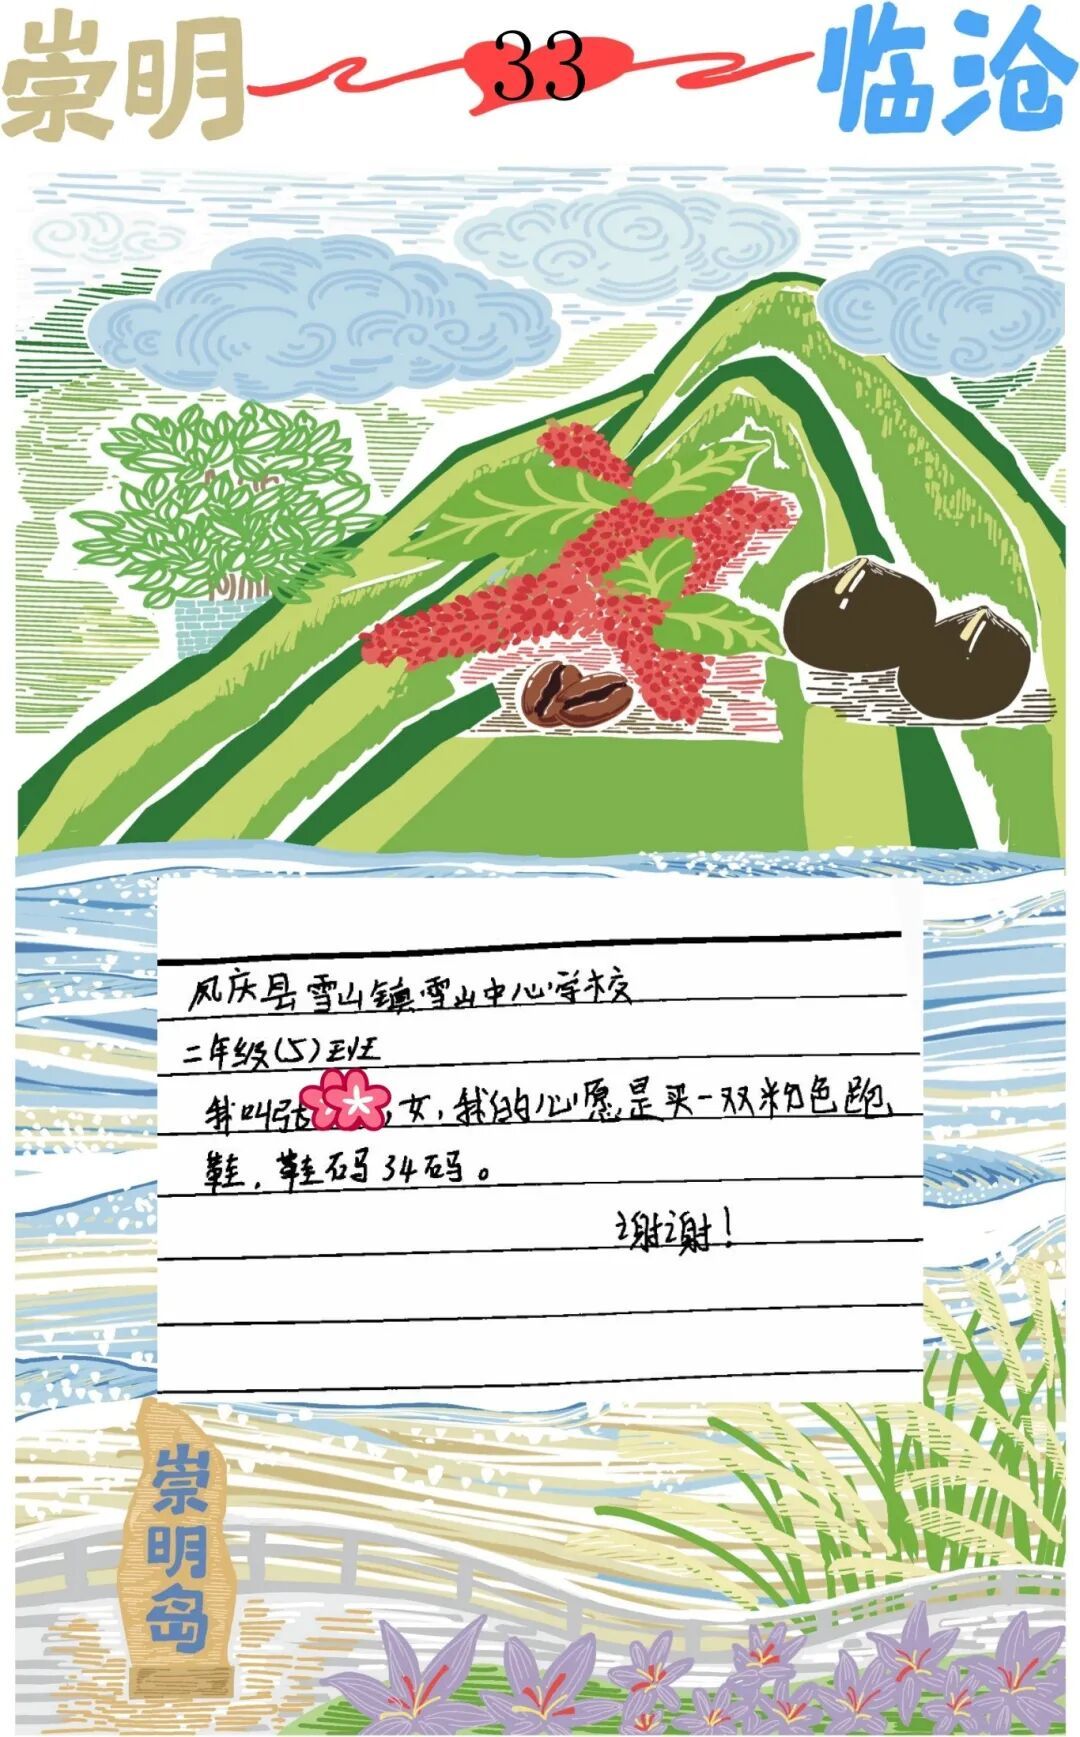 崇明 33 临沧
凤庆县雪山镇雪山中心学校
二年级(5)班
我叫张 ，女，我的心愿是买一双粉色跑
鞋，鞋码34码。
谢谢！
崇明岛